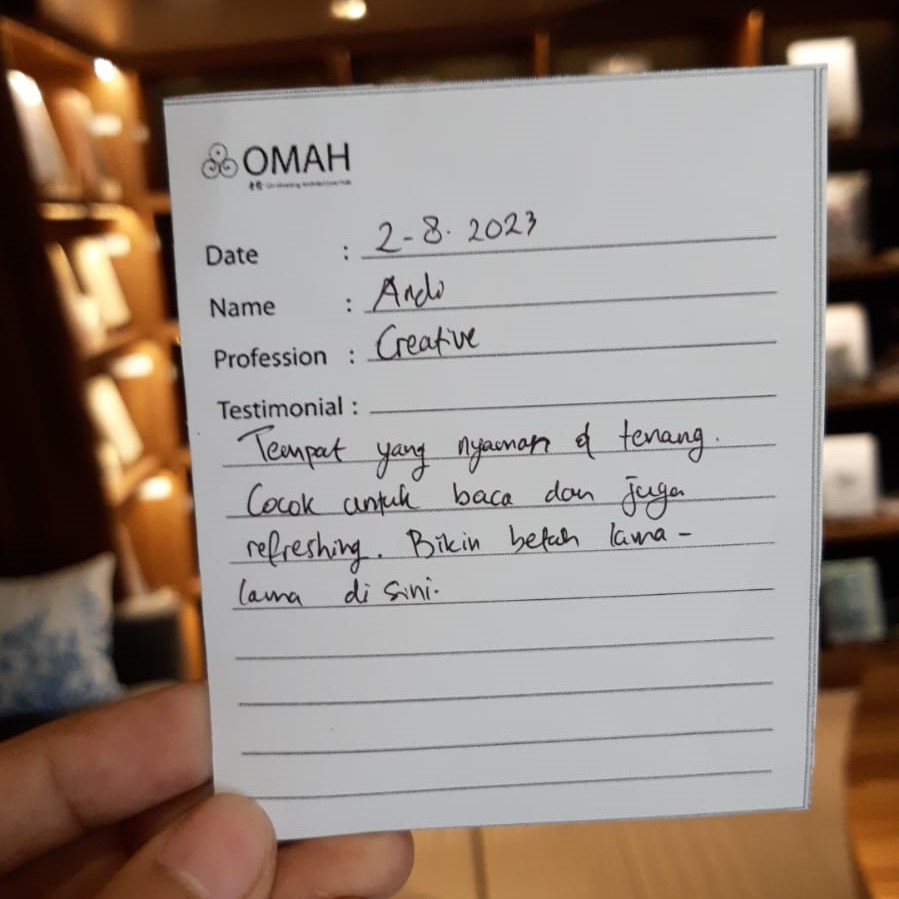 OMAH
Date : 2-8. 2023
Name : Ando
Profession : Creative
Testimonial :
Tempat yang nyaman & tenang.
Cocok untuk baca dan juga
refreshing. Bikin betah lama-
lama di sini.